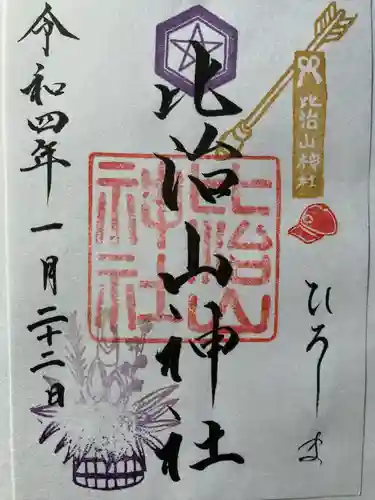 令和四年 一月二十二日
比治山神社
比治山
神社
比治山神社
ひろしま